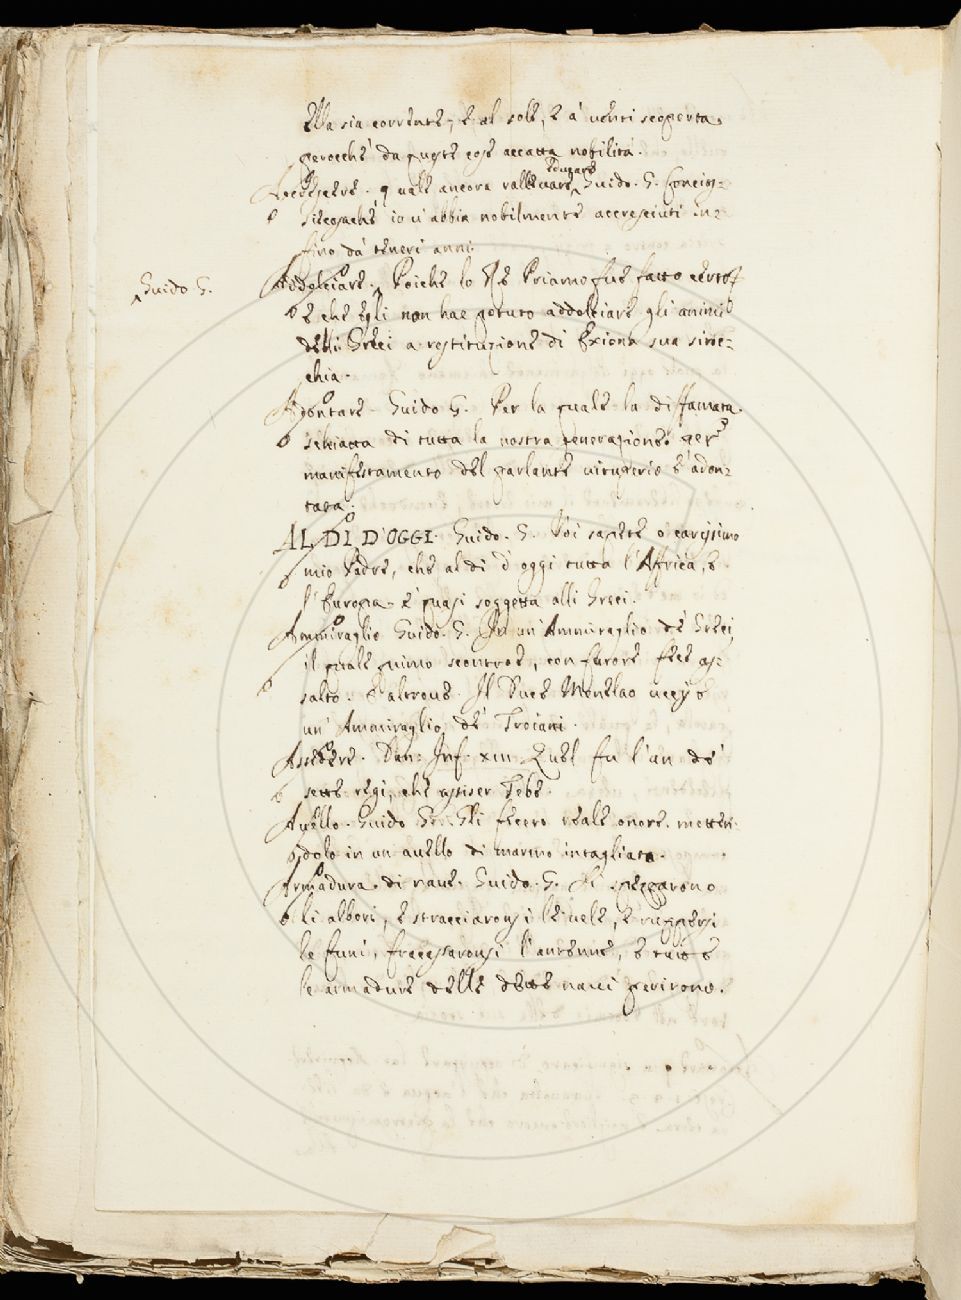 Ella sia corrente, e al sole, e a' venti scoperta,
perocche' da queste cose accatta nobilità.
Accrescere. quale ancora rallevare, Guido. G. Concios-
Educare
siecosache' io v'abbia nobilmente accresciuti in-
fino da' teneri anni.
Guido G.
Addolciare. Poiche lo Re Priamo fue fatto certo
e che egli non hae potuto addolciare gli animi
delli Greci a restituzione di Exiona sua siroc-
chia.
Adontare. Guido G. Per la quale la diffamata
schiatta di tutta la nostra generazione per
manifestamento del parlante vituperio e' adon-
tata.
AL DI D'OGGI. Guido. G. Voi sapete o carissimo
mio Padre, che al di d'oggi tutta l'Affrica, e
l'Europa e' quasi soggetta alli Greci.
Ammiraglio Guido. G. In un' Ammiraglio de' Greci
il quale primo scontroe, con furore fece as-
salto. E altrove. Il Duce Menelao uccise
un' Ammiraglio de' Troiani.
Assidere. Dan. Inf. XIII Quel fu l'un de'
sette regi, che assiser Tebe.
Avello. Guido G. Gli fecero reale onore, metten-
dolo in un avello di marmo intagliato.
Armadura di nave. Guido. G. Si spezzarono
li albori, e stracciaronsi le vele, e ruppersi
le funi, fracassaronsi l'antenne, e tutte
le armadure delle dette navi perirono.